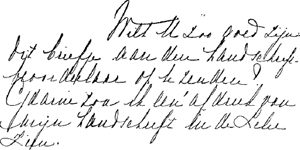 Wilt U zoo goed zijn
dit briefje aan den handschrift-
kundige of te zenden?
Gaarne zou ik een afdruk van
mijn handschrift in de
zien.